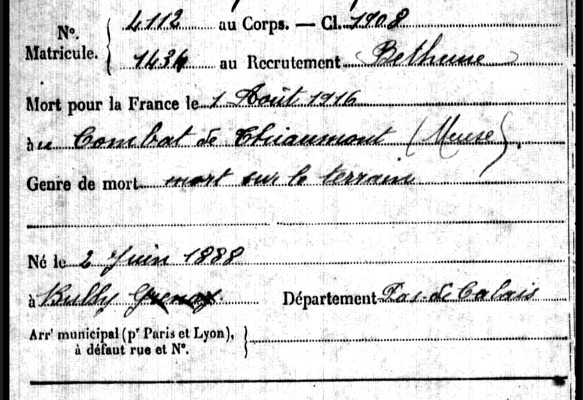 Nº. Matricule. { 4112 au Corps. — Cl. 1908
1434 au Recrutement Béthune
Mort pour la France le 1 Août 1916
à u Combat de Thiaumont (Meuse).
Genre de mort mort sur le terrain
Né le 2 Juin 1888
à Bully Grenay Département Pas-de-Calais
Arrᵗ municipal (pʳ Paris et Lyon), }
à défaut rue et Nº.